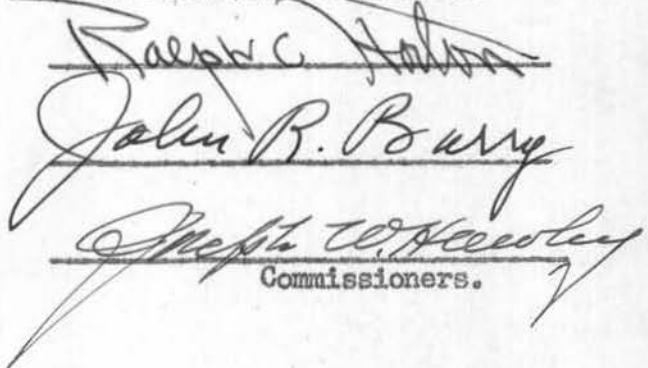 Ralph C. Horton
John R. Barry
Joseph W. Hawley
Commissioners.